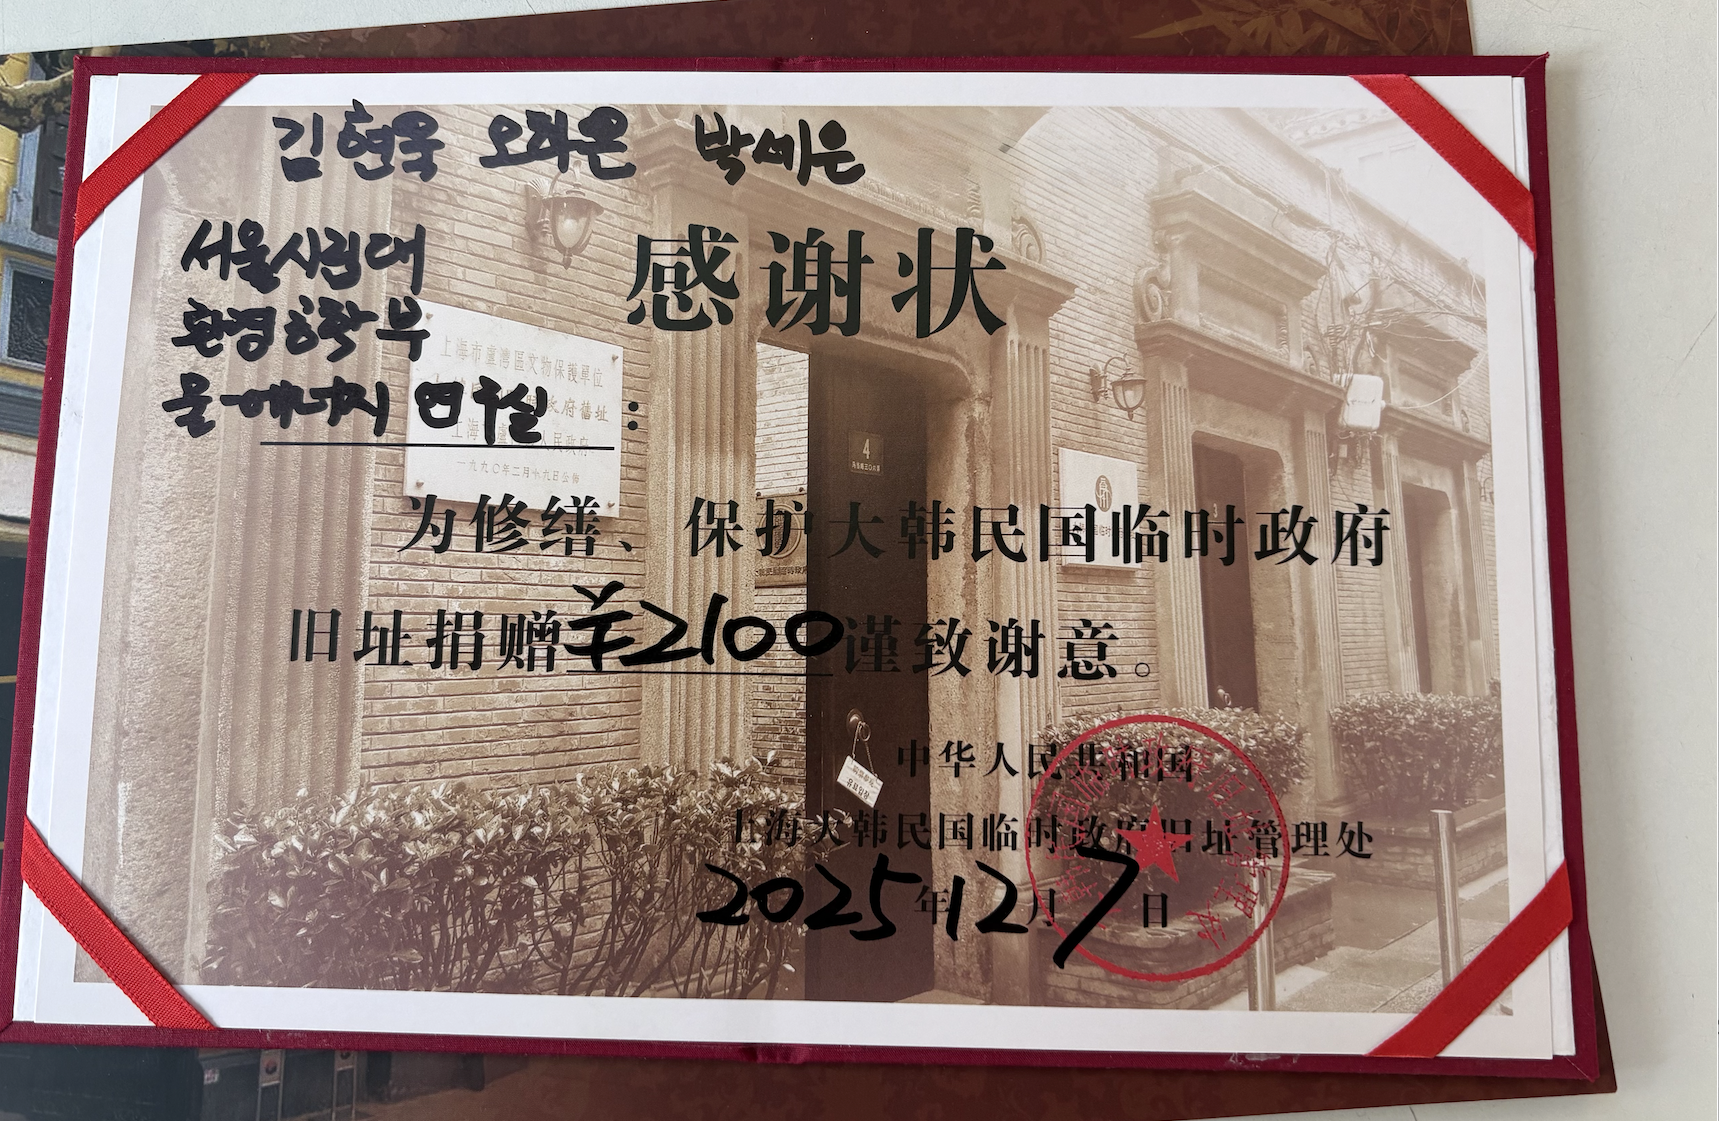 김현욱 오좌온 박세은
感谢状
서울시립대
환경공학부
물-에너지 연구실 :
上海市盧灣區文物保護單位
政府舊址
人民政府
一九九〇年二月十九日公佈
4
为修缮、保护大韩民国临时政府
旧址捐赠¥2100谨致谢意。
中华人民共和国
上海大韩民国临时政府旧址管理处
2025年12月7日